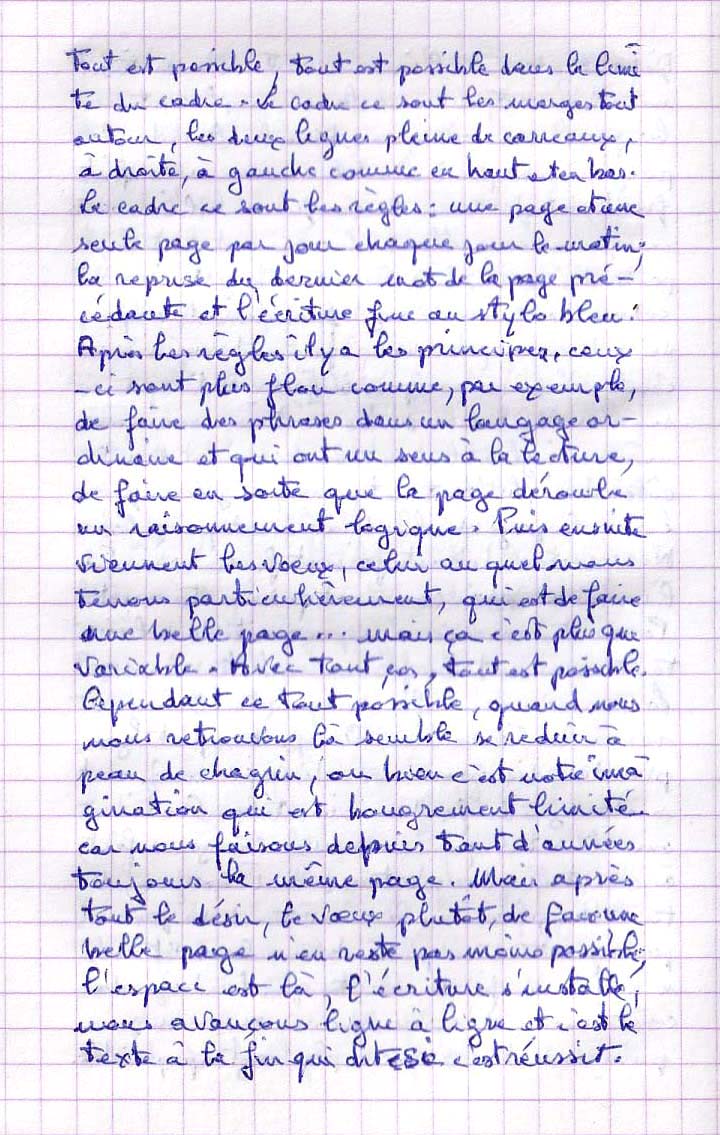 Tout est possible, tout est possible dans la limi
te du cadre. Le cadre ce sont les marges tout
autour, les deux lignes pleine de carreaux,
à droite, à gauche comme en haut et en bas.
Le cadre ce sont les règles : une page et une
seule page par jour chaque jour le matin,
la reprise du dernier mot de la page pré-
cédante et l'écriture fine au stylo bleu.
Après les règles il y a les principes, ceux
-ci sont plus flou comme, par exemple,
de faire des phrases dans un langage or-
dinaire et qui ont un sens à la lecture,
de faire en sorte que la page déroule
un raisonnement logique. Puis ensuite
viennent les voeux, celui au quel nous
tenons particulièrement, qui est de faire
une belle page... mais ça c'est plus que
variable. Avec tout ça, tout est possible.
Cependant ce tout possible, quand nous
nous retrouvons là semble se réduir à
peau de chagrin, ou bien c'est notre ima
gination qui est bougrement limité
car nous faisons depuis tant d'années
toujours la même page. Mais après
tout le désir, le voeux plutôt, de faire une
belle page n'en reste pas moins possible,
l'espace est là, l'écriture s'installe,
nous avançons ligne à ligne et c'est le
texte à la fin qui dit si c'est réussit.